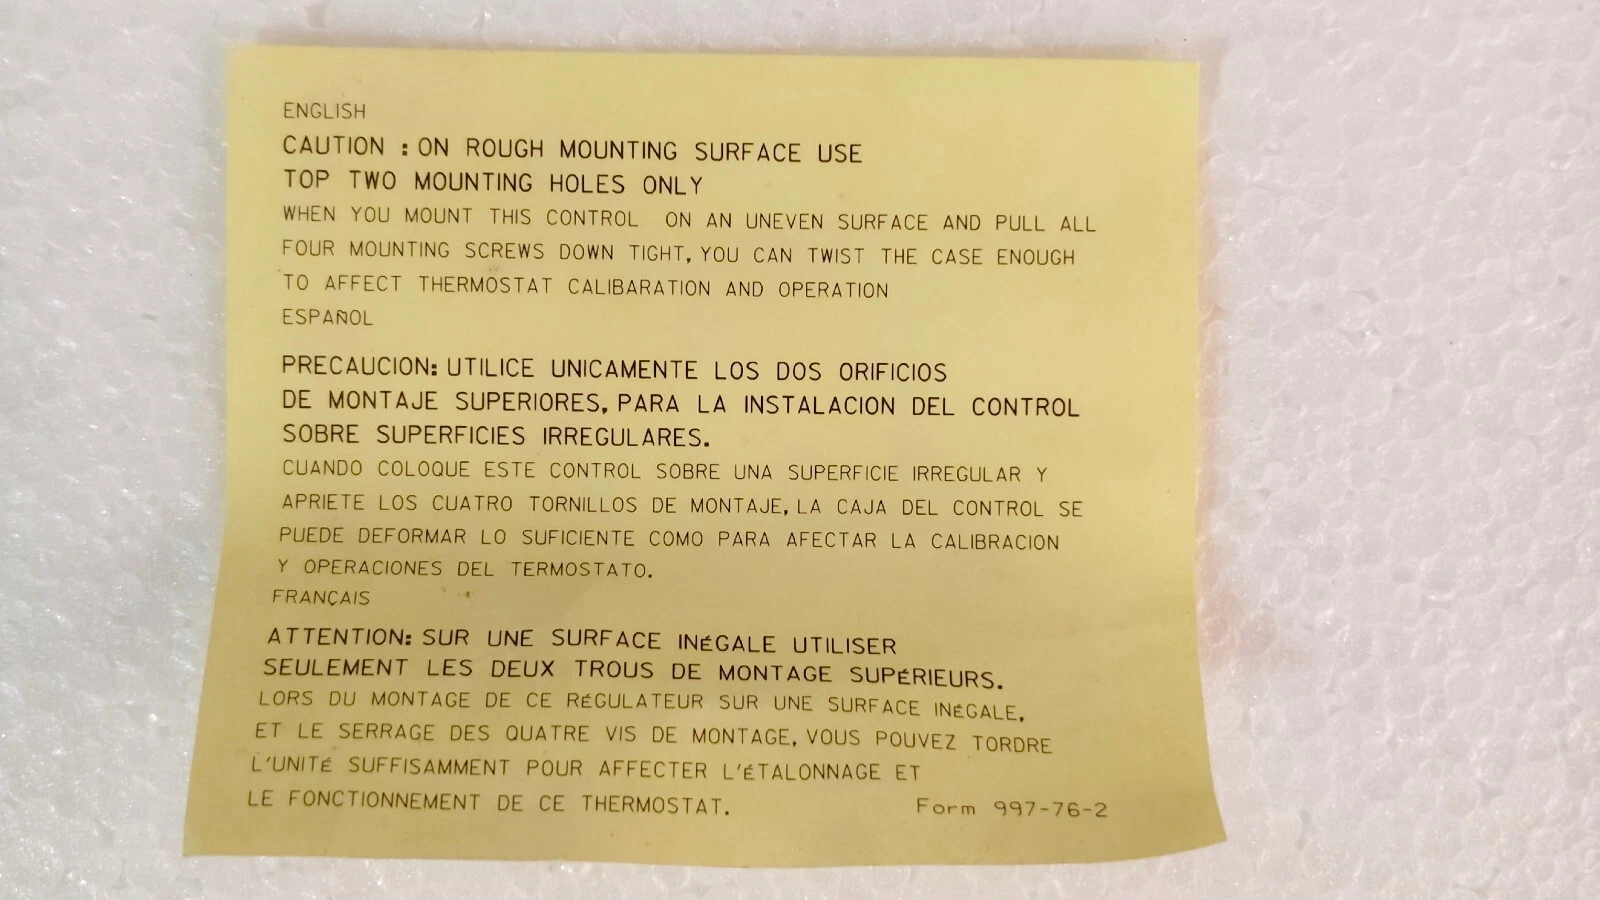 ENGLISH
CAUTION : ON ROUGH MOUNTING SURFACE USE
TOP TWO MOUNTING HOLES ONLY
WHEN YOU MOUNT THIS CONTROL ON AN UNEVEN SURFACE AND PULL ALL
FOUR MOUNTING SCREWS DOWN TIGHT, YOU CAN TWIST THE CASE ENOUGH
TO AFFECT THERMOSTAT CALIBARATION AND OPERATION
ESPAÑOL
PRECAUCION: UTILICE UNICAMENTE LOS DOS ORIFICIOS
DE MONTAJE SUPERIORES, PARA LA INSTALACION DEL CONTROL
SOBRE SUPERFICIES IRREGULARES.
CUANDO COLOQUE ESTE CONTROL SOBRE UNA SUPERFICIE IRREGULAR Y
APRIETE LOS CUATRO TORNILLOS DE MONTAJE, LA CAJA DEL CONTROL SE
PUEDE DEFORMAR LO SUFICIENTE COMO PARA AFECTAR LA CALIBRACION
Y OPERACIONES DEL TERMOSTATO.
FRANÇAIS
ATTENTION: SUR UNE SURFACE INÉGALE UTILISER
SEULEMENT LES DEUX TROUS DE MONTAGE SUPÉRIEURS.
LORS DU MONTAGE DE CE RÉGULATEUR SUR UNE SURFACE INÉGALE,
ET LE SERRAGE DES QUATRE VIS DE MONTAGE, VOUS POUVEZ TORDRE
L'UNITÉ SUFFISAMMENT POUR AFFECTER L'ÉTALONNAGE ET
LE FONCTIONNEMENT DE CE THERMOSTAT.
Form 997-76-2